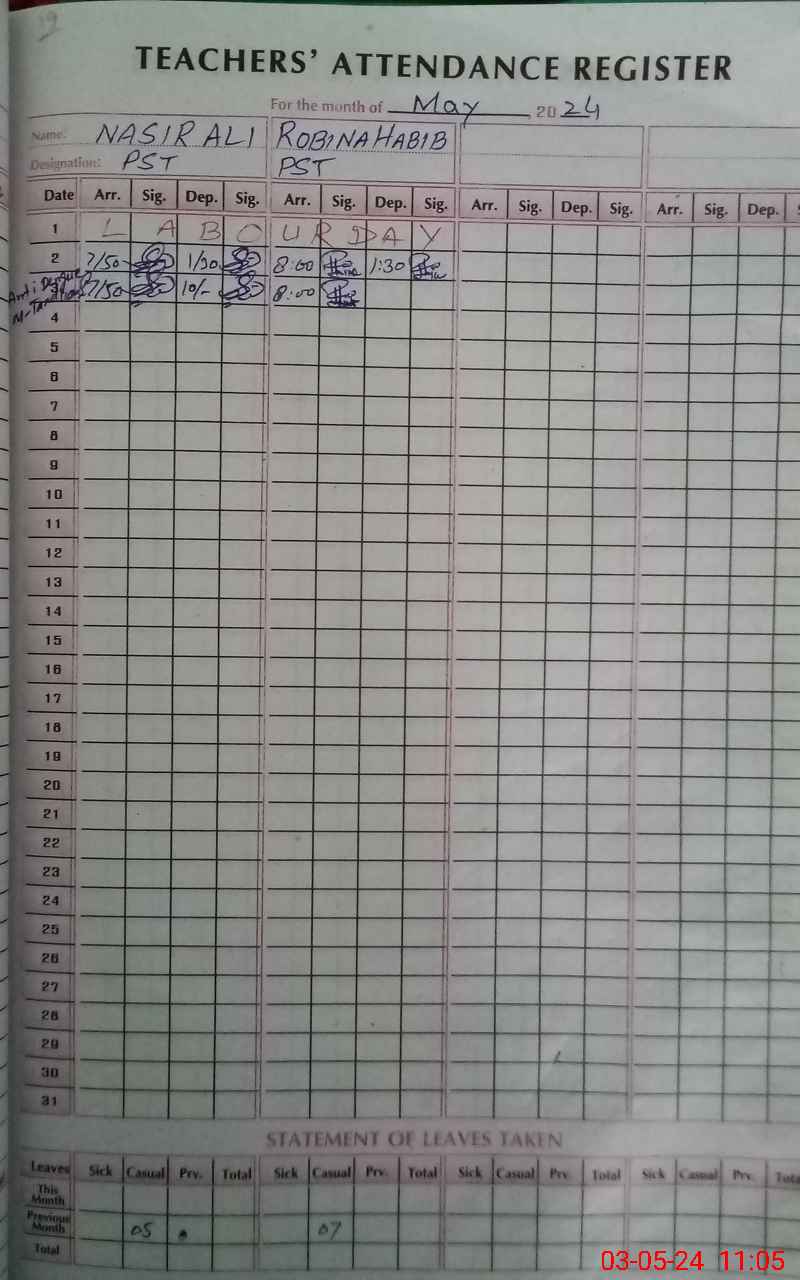 TEACHERS' ATTENDANCE REGISTER
For the month of May 2024
Name: NASIR ALI ROBINA HABIB
Designation: PST PST
Date Arr. Sig. Dep. Sig. Arr. Sig. Dep. Sig. Arr. Sig. Dep. Sig. Arr. Sig. Dep. S
1 L A B O U R D A Y
2 7/50 1/30 8:00 1:30
7/50 10/- 8:00
Anti
4
5
6
7
8
9
10
11
12
13
14
15
16
17
18
19
20
21
22
23
24
25
26
27
28
29
30
31
STATEMENT OF LEAVES TAKEN
Leaves Sick Casual Prv. Total Sick Casual Prv. Total Sick Casual Prv. Total Sick Casual Prv. Tota
This Month
Previous Month 05 07
Total
03-05-24 11:05